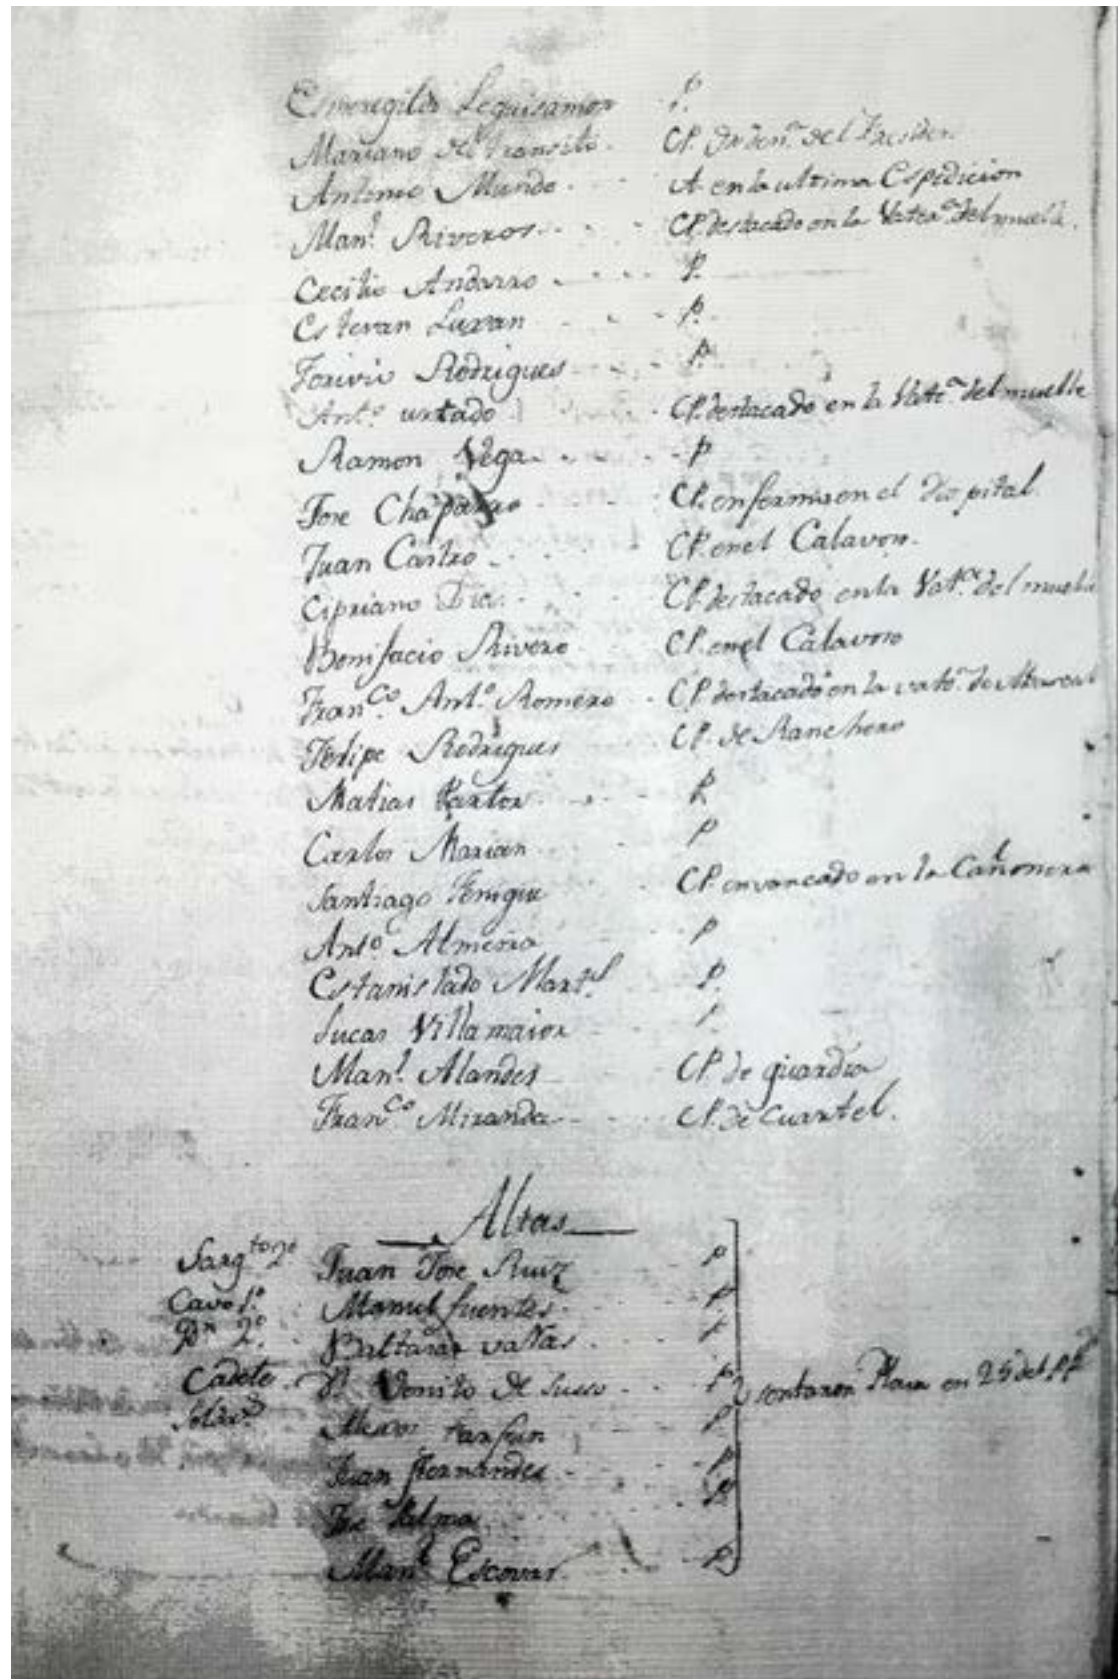 Esmeregildo Leguisamon P.
Mariano del transito. CP. orden.ª del Preciden.
Antonio Mundo. A. en la ultima Espedicion
Man.l Riveros. CP. destacado en la Vatea.ª del muelle.
Cecilio Andarro P.
Estevan Luxan P.
Torivio Rodrigues P.
Ant.º urtado CP. destacado en la Vate.ª del muelle
Ramon Vega P
Jose Chaparro CP. enfermo en el Ospital
Juan Castro CP. en el Calavoso.
Cipriano Dias. CP. destacado en la Vat.ª del muelle
Bonifacio Rivero CP. en el Calavoso
Fran.co Ant.º Romero CP. destacado en la vate.ª de
Felipe Rodrigues CP. de Ranchero
Matias Pastor P.
Carlos Marian P
Santiago CP. envarcado en la Cañonera
Ant.º Almeria P
Estanislado Mart.s P.
Lucas Villamaior P.
Man.l Alandes CP. de guardia
Fran.co Miranda CP. de Cuartel.
Altas
Sarg.to 2º Juan Jose Ruiz P
Cavo 1.º Manuel fuentes P
D.n 2.º Baltasar vallas P
Cadete D.n Venito de Susso P sentaron Plaza en 25 del p.p.
Soldad.º tarfun P
Juan Fernandes P
Jose Palma P
Man.l Escovar P